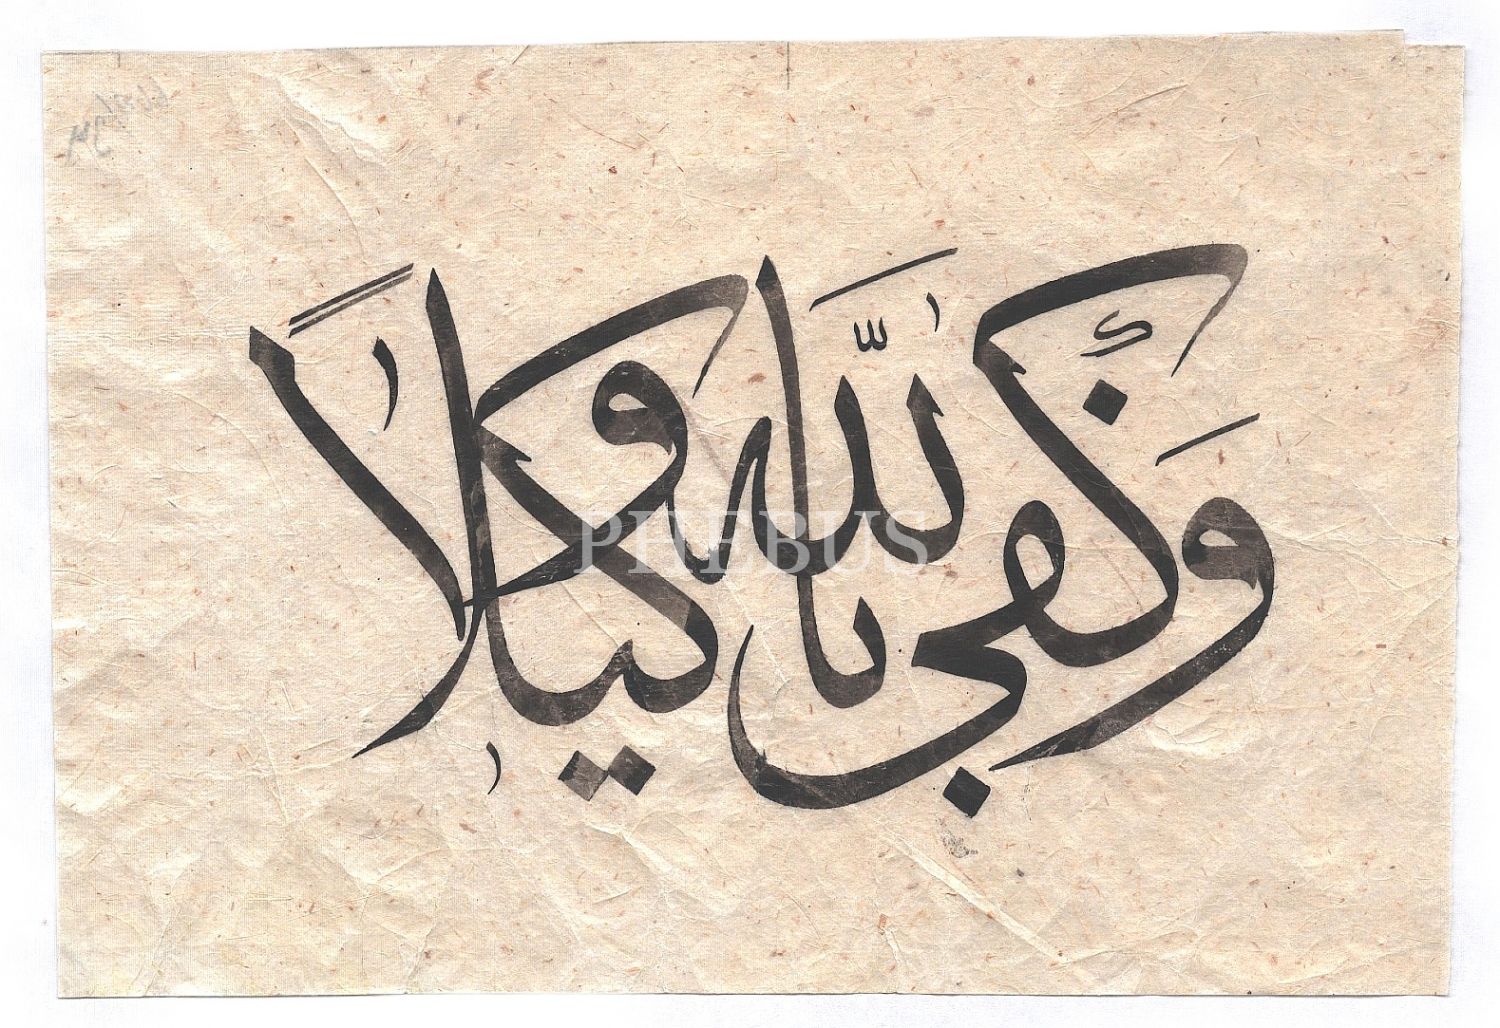 وَكَفَى بِاللّٰهِ وَكِيلاً
PHEBUS